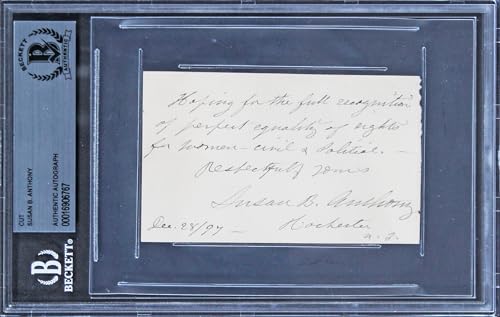 BECKETT
AUTHENTIC
CUT
SUSAN B. ANTHONY
AUTHENTIC AUTOGRAPH
00015906767
BECKETT®
Hoping for the full recognition
of perfect equality of rights
for women - civil & political. -
Respectfully yours
Susan B. Anthony
Dec. 28/97 - Rochester
N. Y.